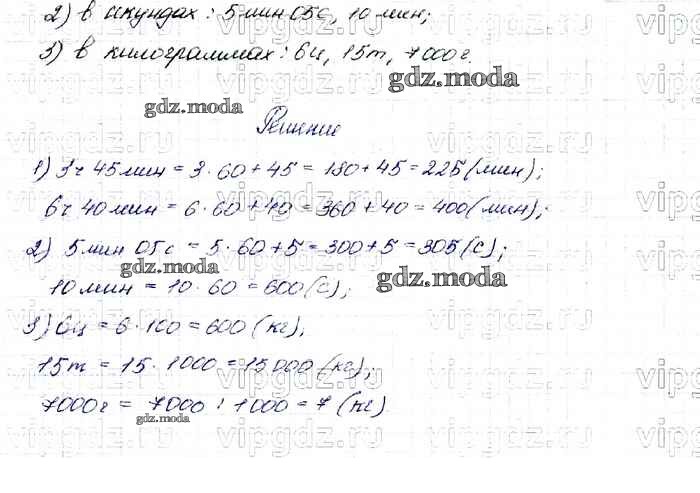 2) в секундах: 5 мин 05 с, 10 мин;
3) в килограммах: 6 ц, 15 т, 7000 г.
gdz.moda
gdz.moda
Решение
1) 3 ч 45 мин = 3 · 60 + 45 = 180 + 45 = 225 (мин);
6 ч 40 мин = 6 · 60 + 40 = 360 + 40 = 400 (мин);
2) 5 мин 05 с = 5 · 60 + 5 = 300 + 5 = 305 (с);
gdz.moda
gdz.moda
10 мин = 10 · 60 = 600 (с);
3) 6 ц = 6 · 100 = 600 (кг),
15 т = 15 · 1000 = 15 000 (кг);
7000 г = 7000 : 1000 = 7 (кг)
gdz.moda
vipgdz.ru